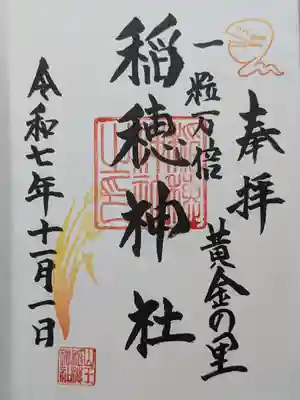 奉拝
一粒万倍
黄金の里
稲穂神社
令和七年十一月一日